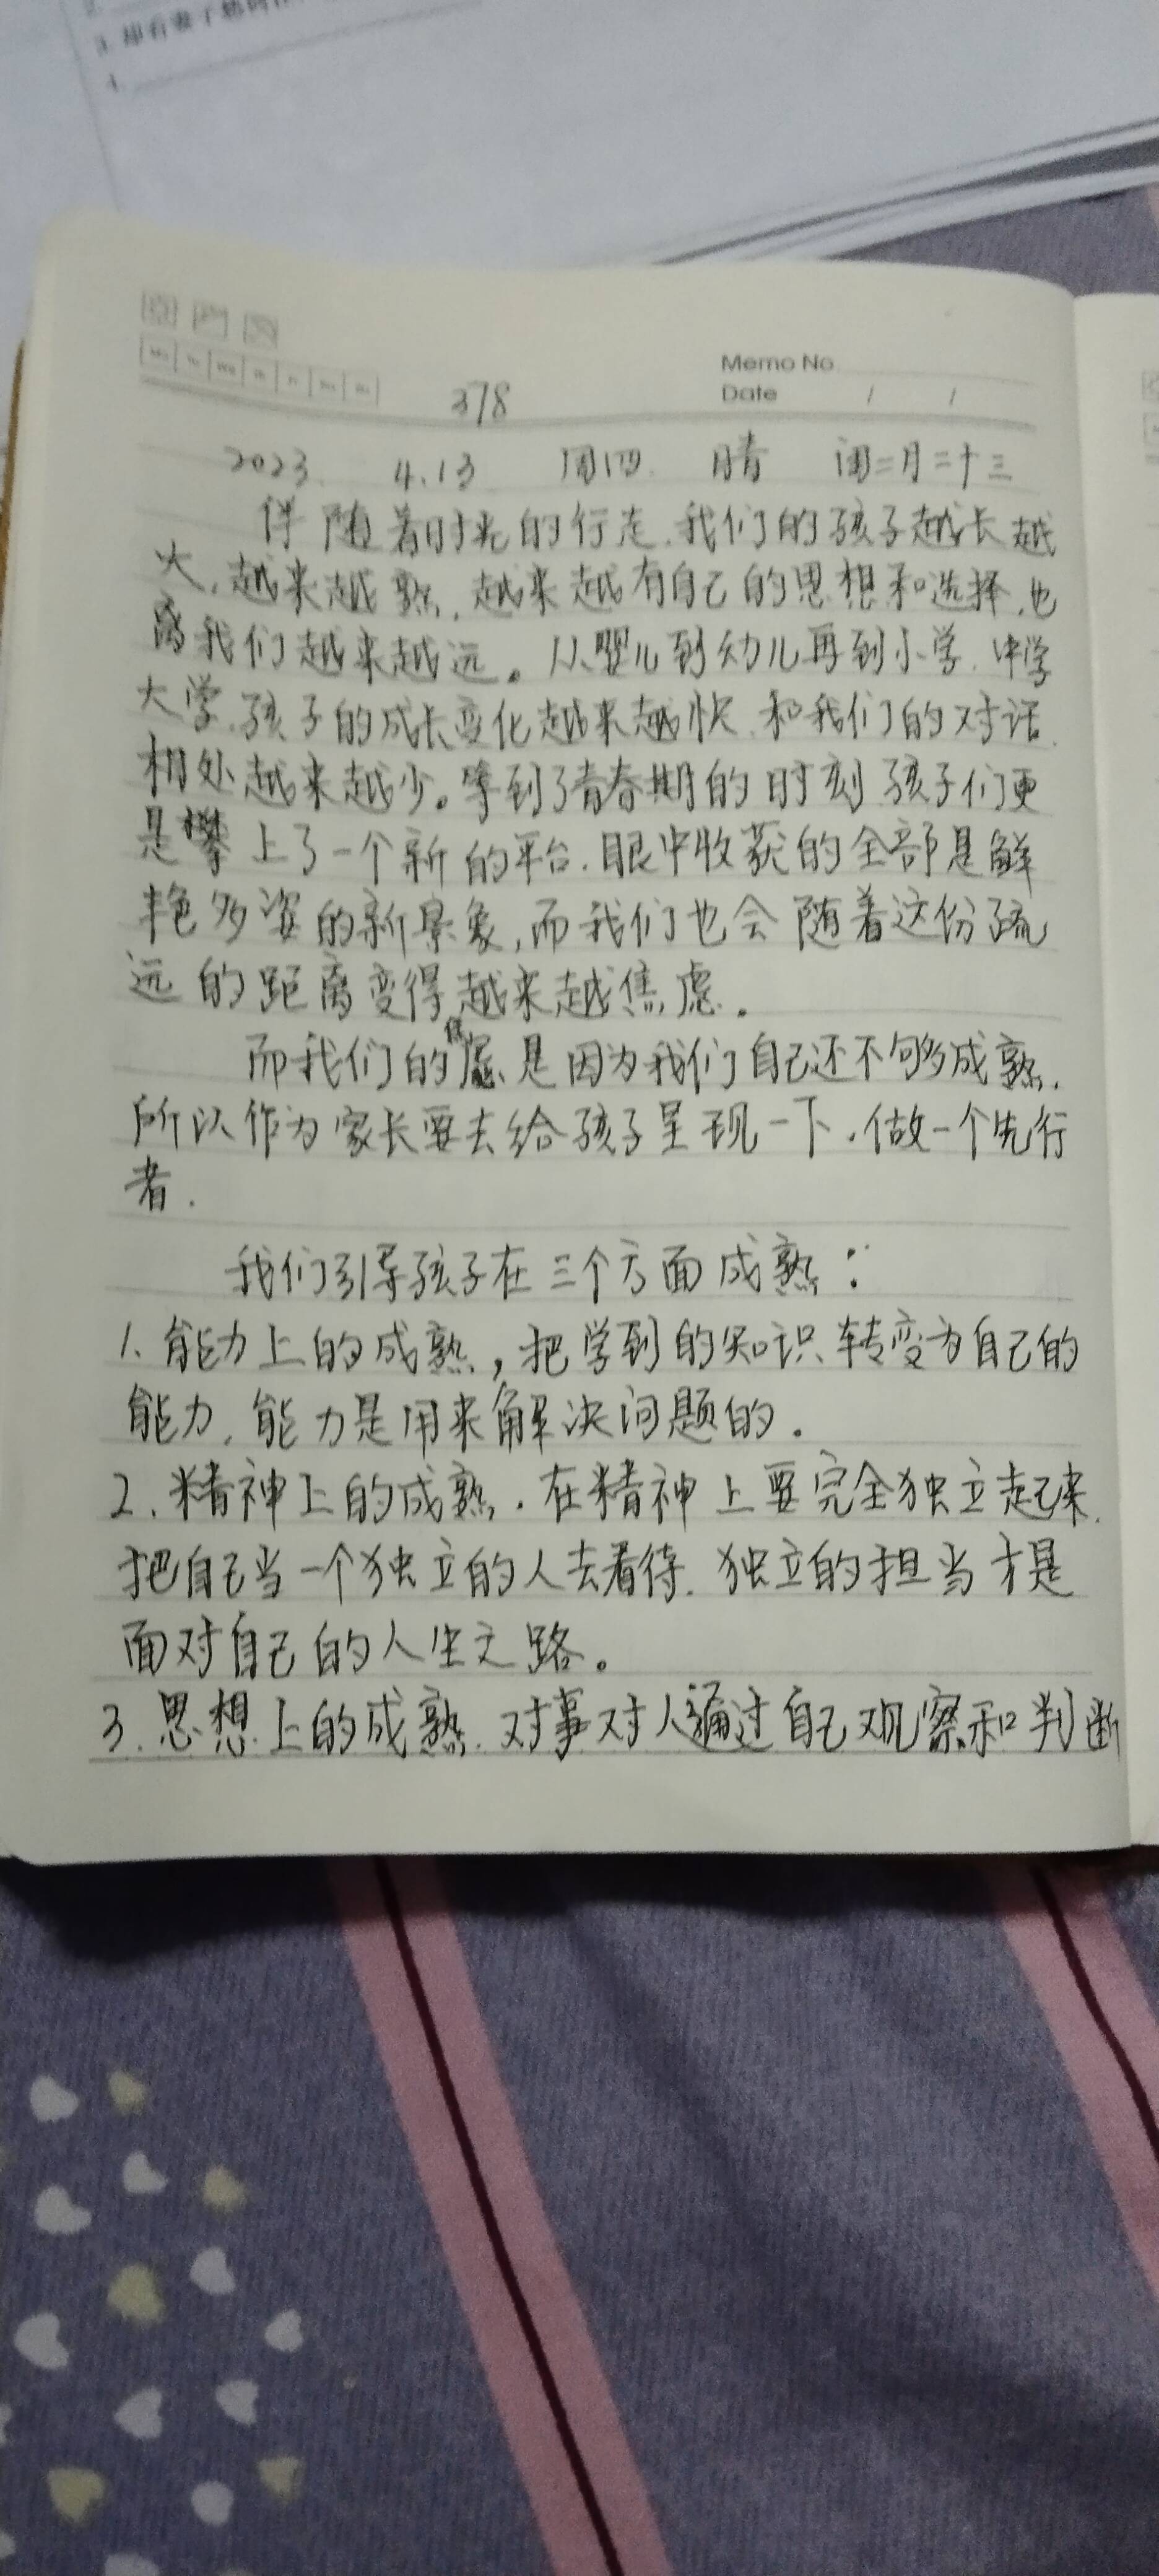 3.
4.
Memo No
Date / /
378
2023. 4.13 周四. 晴 闰二月二十三
伴随着时光的行走.我们的孩子越长越
大,越来越熟,越来越有自己的思想和选择,也
离我们越来越远。从婴儿到幼儿再到小学.中学
大学.孩子的成长变化越来越快.和我们的对话.
相处越来越少。等到了青春期的时刻孩子们更
是攀上了一个新的平台.眼中收获的全部是鲜
艳多姿的新景象,而我们也会随着这份疏
远的距离变得越来越焦虑.
而我们的焦虑是因为我们自己还不够成熟.
所以作为家长要去给孩子呈现一下.做一个先行
者.
我们引导孩子在三个方面成熟:
1.能力上的成熟,把学到的知识转变为自己的
能力.能力是用来解决问题的.
2.精神上的成熟.在精神上要完全独立起来.
把自己当一个独立的人去看待.独立的担当才是
面对自己的人生之路。
3.思想上的成熟.对事对人通过自己观察和判断